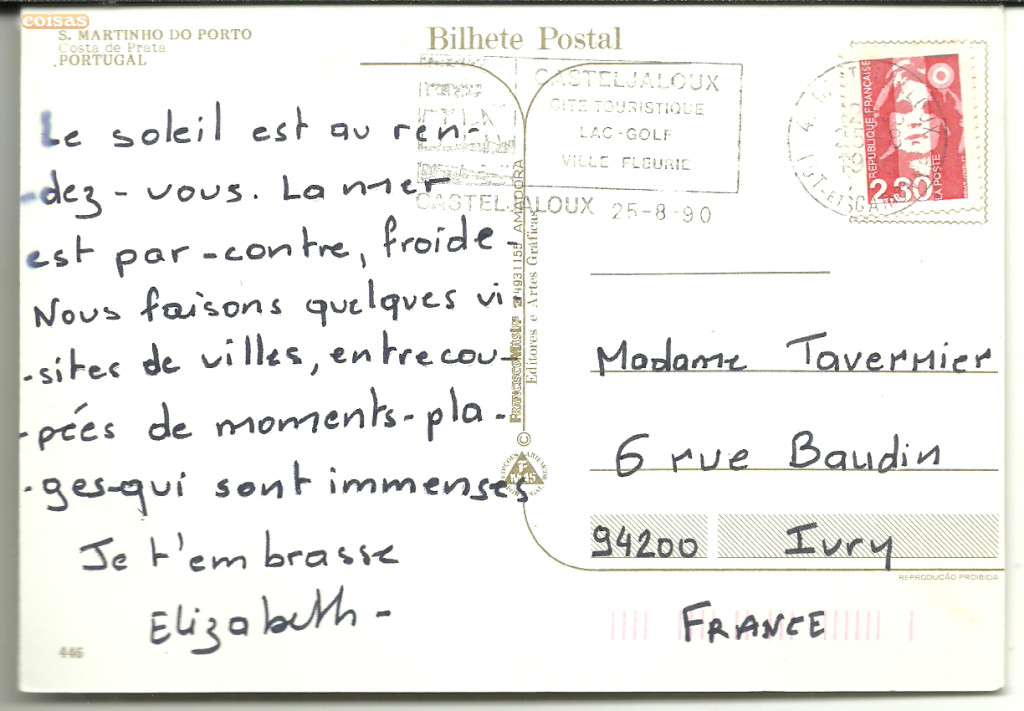 coisas
S. MARTINHO DO PORTO
Costa de Prata
PORTUGAL
Bilhete Postal
CASTELJALOUX
CITE TOURISTIQUE
LAC-GOLF
VILLE FLEURIE
CASTELJALOUX 25-8-90
REPUBLIQUE FRANÇAISE
2,30
LA POSTE
Le soleil est au ren-
-dez-vous. La mer
est par-contre, froide-
Nous faisons quelques vi
-sites de villes, entrecou-
-pées de moments-pla-
-ges-qui sont immenses
Je t'embrasse
Elizabeth-
446
4931155 AMADORA
Editores e Artes Gráficas
©
Madame Tavernier
6 rue Baudin
94200 Ivry
REPRODUÇÃO PROIBIDA
FRANCE